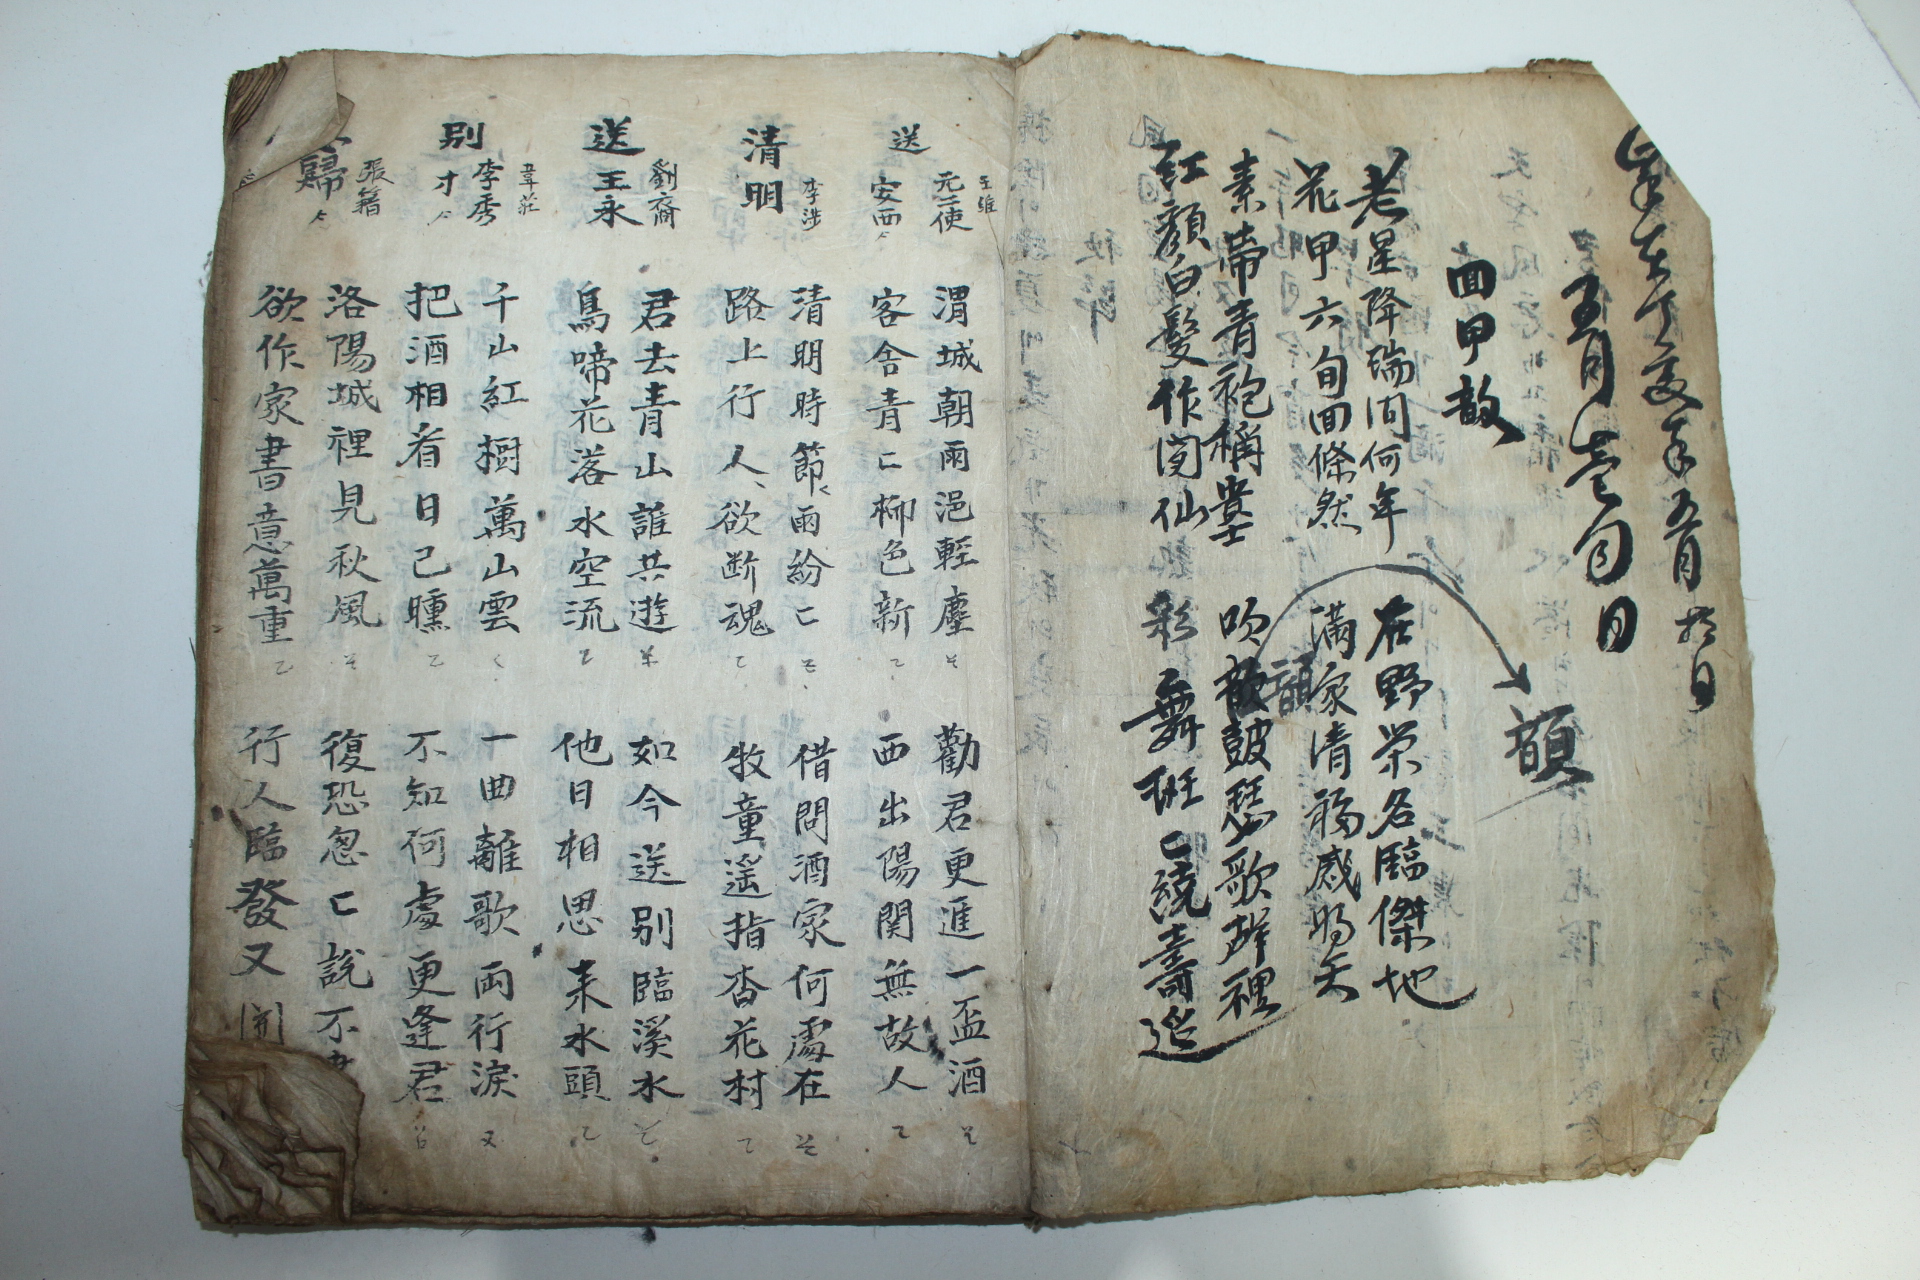 五月
回甲韻
老星降瑞问何年
在野荣名臨傑地
花甲六旬回倏然
滿家清福感明天
素帶青袍稱
吹歡鼓瑟歌聲裡
紅顔白髮作閑仙
彩舞班〻繞壽筵
韻
韻
送元二使安西 王維
渭城朝雨浥輕塵
勸君更進一盃酒
客舍青〻柳色新
西出陽関無故人
清明 李涉
清明時節雨紛〻
借問酒家何處在
路上行人欲断魂
牧童遥指杏花村
送王永 劉商
君去青山誰共遊
如今送别臨溪水
鳥啼花落水空流
他日相思来水頭
别李秀才 韋莊
千山紅樹萬山雲
一曲離歌両行淚
把酒相看日已曛
不知何處更逢君
歸 張籍
洛陽城裡見秋風
復恐忽〻說不
欲作家書意萬重
行人臨發又開